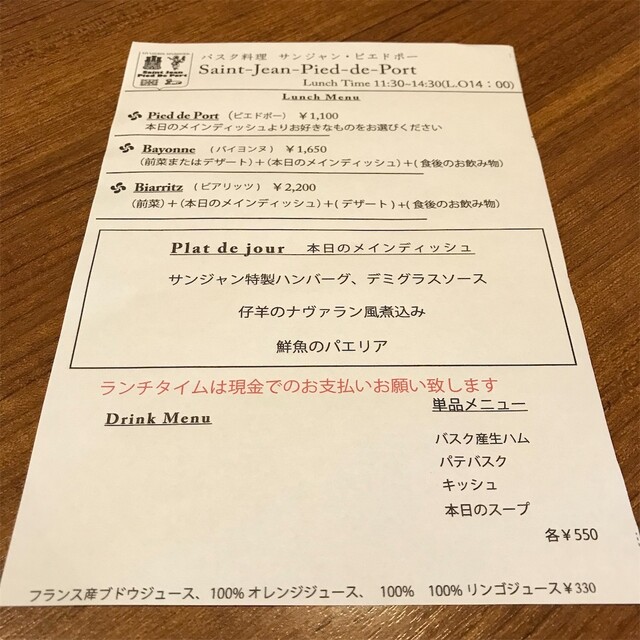 Saint Jean
Pied De Port
バスク料理 サンジャン・ピエドポー
Saint-Jean-Pied-de-Port
Lunch Time 11:30-14:30(L.O14：00)
Lunch Menu
Pied de Port （ピエドポー） ￥1,100
本日のメインディッシュよりお好きなものをお選びください
Bayonne （バイヨンヌ） ￥1,650
（前菜またはデザート）＋（本日のメインディッシュ）＋( 食後のお飲み物）
Biarritz （ビアリッツ） ￥2,200
（前菜）＋（本日のメインディッシュ）＋( デザート ) ＋( 食後のお飲み物）
Plat de jour 本日のメインディッシュ
サンジャン特製ハンバーグ、デミグラスソース
仔羊のナヴァラン風煮込み
鮮魚のパエリア
ランチタイムは現金でのお支払いお願い致します
Drink Menu
単品メニュー
バスク産生ハム
パテバスク
キッシュ
本日のスープ
各￥550
フランス産ブドウジュース、100% オレンジジュース、 100% 100% リンゴジュース￥330